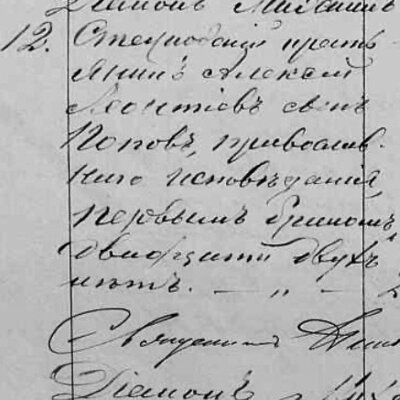 Діаконъ Михаилъ
12. кресть-
янинъ Алексей
Леонтіевъ сынъ
Поповъ, православ-
наго исповѣданія,
первымъ бракомъ,
двадцати двухъ
лѣтъ. — „ —
Священникъ
Діаконъ